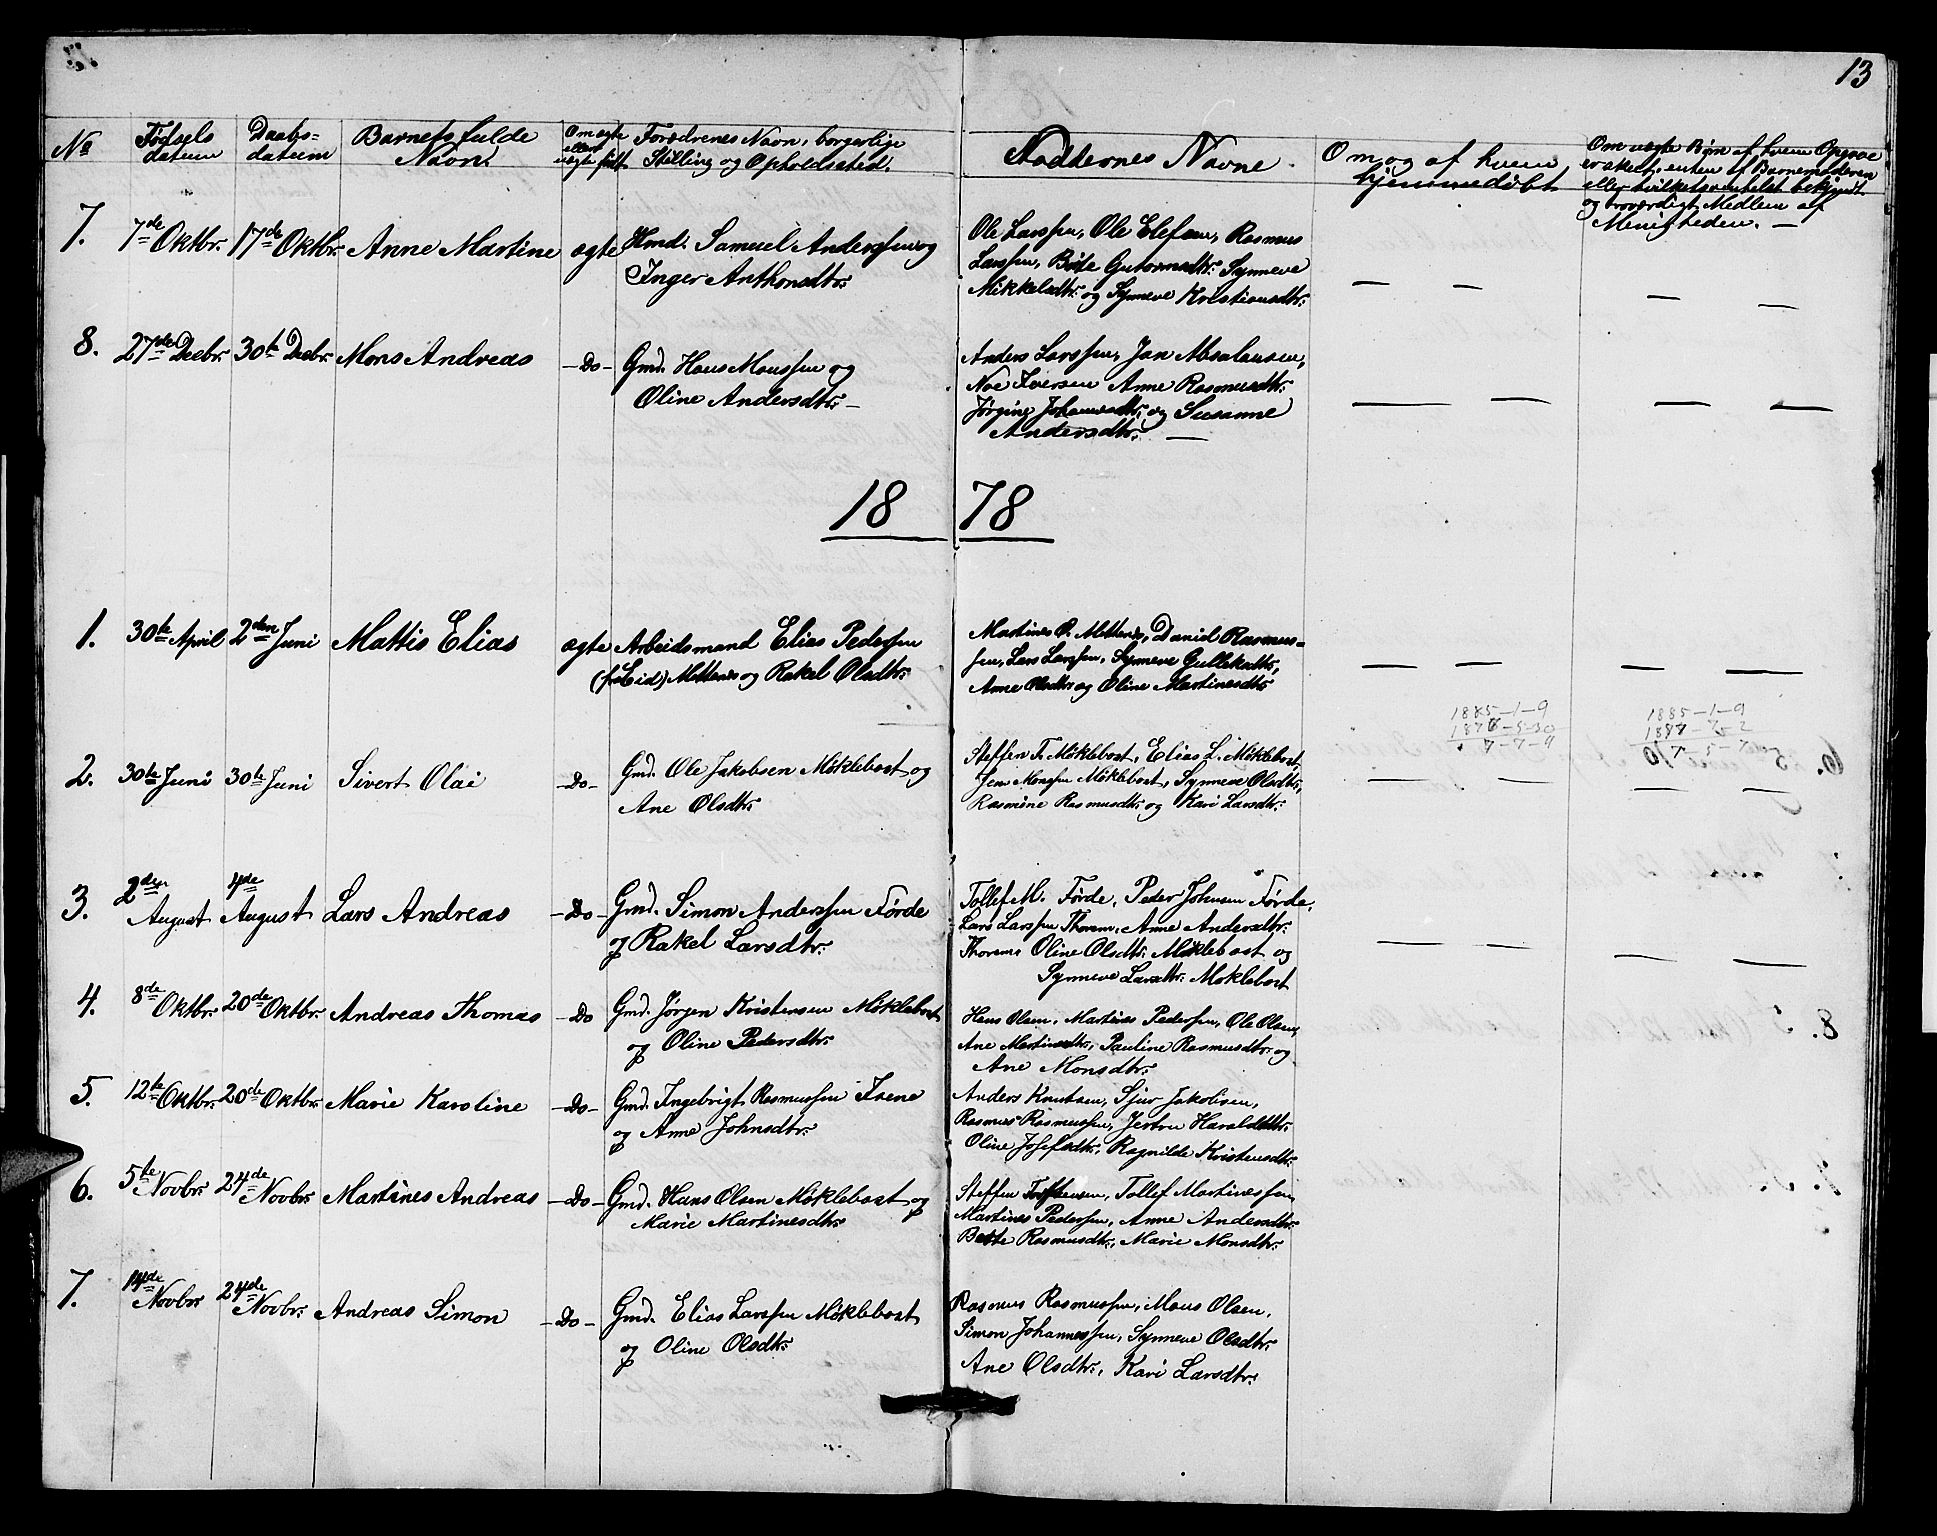 13
No
Fødsels datum
Daabs- datum
Barnets fulde Navn.
Om ægte eller uægte født
Forældrenes Navn, borgerlige Stilling og Opholdssted.
Fadderenes Navne.
Om og af hvem hjemmedøbt
Om uægte Børn af hvem Opgave er skeet, enten af Barnemoderen eller hvilketsomhelst bekjendt og troværdigt Medlem af Menigheden. —
7. 7de Oktbr. 17de Oktbr. Anne Martine ægte Hmd. Samuel Anderssen og
Inger Anthonsdtr.
Ole Larssen, Ole Elefsen, Rasmus
Larssen, Gutormsdtr. Synneve
Mikkelsdtr. og Synneve Kristiansdtr.
— — — —
8. 27de Decbr. 30te Decbr. Mons Andreas — Do — Gmd. Hans Monssen og
Oline Andersdtr. —
Anders Larssen, Jan Absalonsen,
Noe Iversen Anne Rasmusdtr.
Jørgine Johannesdtr. og Susanne
Andersdtr. —
— — — —
18 78
1. 30te April 2den Juni Mattis Elias ægte Arbeidsmand Elias Pedersen
(f. Eid) Mettenes og Rakel Olsdtr.
Martines P. Mettenes, Daniel Rasmus-
sen, Lars Larssen, Synneve Gulleksdtr,
Anne Olsdtr og Oline Martinesdtr
— — — —
1885-1-9 1885-1-9
2. 30te Juni 30te Juni Sivert Olai — Do — Gmd. Ole Jakobsen Möklebost og
Ane Olsdtr.
Steffen T. Möklebost, Elias L. Möklebost
Jens Monssen Möklebost, Synneve Olsdtr,
Rasmine Rasmusdtr. og Kari Larsdtr.
— — — —
3. 2den August 4de August Lars Andreas — Do — Gmd. Simon Anderssen Førde
og Rakel Larsdtr.
Tollef M. Førde, Peder Johnsen Førde,
Lars Larssen Thorem, Anne Andersdtr.
Oline Olsdtr. Möklebost og
Synneve Larsdtr. Möklebost
— — — —
4. 8de Oktbr. 20de Oktbr. Andreas Thomas — Do Gmd. Jørgen Kristensen Möklebost
og Oline Pedersdtr.
Hans Olsen, Martines Pedersen, Ole Olsen,
Ane Martinesdtr, Pauline Rasmusdtr. og
Ane Monsdtr.
5. 12te Oktbr. 20de Oktbr. Marie Karoline — Do — Gmd. Ingebrigt Rasmussen
og Anne Johnsdtr.
Anders Knutsen, Sjur Jakobsen,
Rasmus Rasmussen, Jertru Haraldsdtr.
Oline Josefsdtr, Ragnilde Kristensdtr.
6. 5te Novbr. 24de Novbr. Martines Andreas — Do — Gmd. Hans Olsen Möklebost og
Marie Martinesdtr.
Steffen Torstensen, Tollef Martinessen,
Martines Pedersen, Anne Andersdtr.
Rasmusdtr, Marie Monsdtr.
7. 14de Novbr 24de Novbr. Andreas Simon — Do — Gmd. Elias Larssen Möklebost
og Oline Olsdtr.
Rasmus Rasmussen, Mons Olsen,
Simon Johannessen, Synneve Olsdtr.
Ane Olsdtr, Kari Larsdtr.